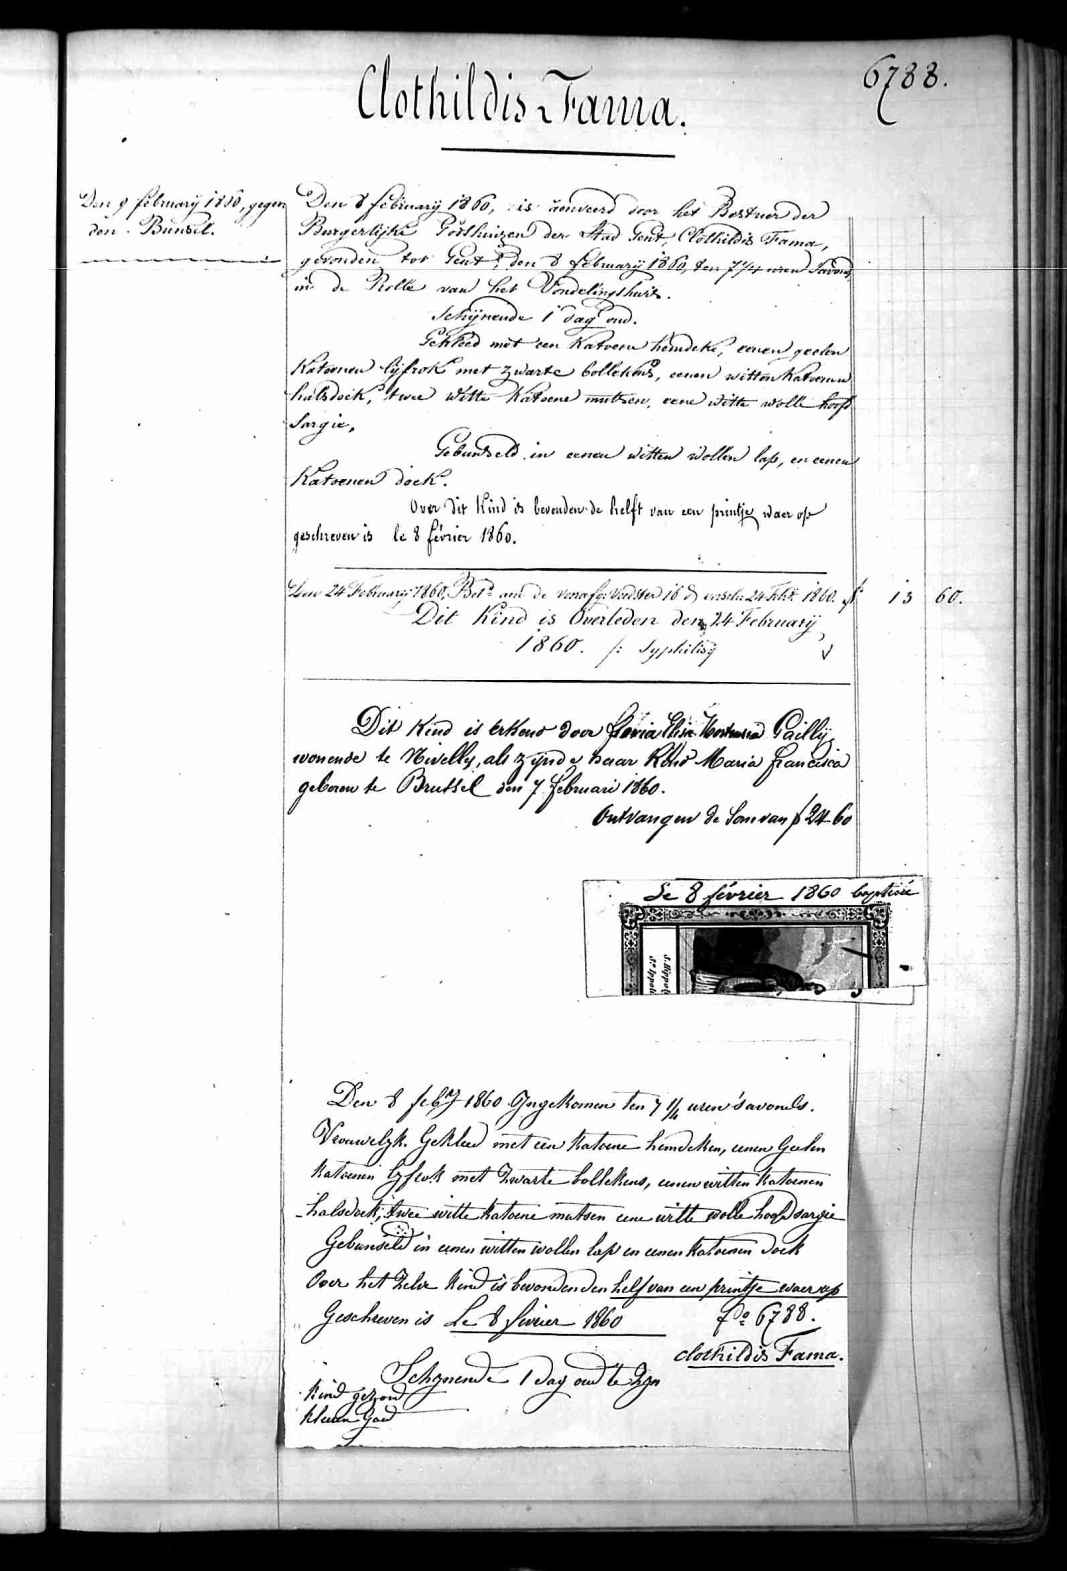 6788.
Clothildis Fama.
Den 9 february 1860, gegeven
den Bunsel.
Den 8 february 1860, is aenveerd door het Bestuer der
Burgerlijke Godshuizen der Stad Gent, Clothildis Fama,
gevonden tot Gent, den 8 february 1860, ten 7 1/4 uren Savonds,
in de Rolle van het Vondelingshuis.
Schijnende 1 dag oud.
Gekleed met een Katoenen hemdeke, eenen geelen
Katoenen lijfrok met zwarte bollekens, eenen witten Katoenen
halsdoek, twee witte Katoene mutsen, eene witte wolle hoofd
Sargie,
Gebunseld in eenen witten wollen lap, en eenen
Katoenen doek.
Over dit Kind is bevonden de helft van een printje waer op
geschreven is le 8 février 1860.
Den 24 February 1860, Bet. aen de voedster 16 d 24 1860. f. 13 60.
Dit Kind is Overleden den 24 February
1860. /: Syphilis
Dit Kind is erkend door flavia Elisa Pailly,
wonende te Nivelly, als zijnde haar Kind Maria francisca
geboren te Brussel den 7 februari 1860.
Ontvangen de Som van f 24 60
Le 8 février 1860 baptisée
S. Hyppol
Sn Ippoli
Den 8 febry 1860 Ingekomen ten 7 1/4 uren 's avonds.
Vrouwelyk. Gekleed met een Katoene hemdeken, eenen Geelen
Katoenen lyfrok met Zwarte bollekens, eenen witten Katoenen
halsdoek, twee witte Katoene mutsen eene witte wolle hoofdsargie
Gebunseld in eenen witten wollen lap en eenen Katoenen doek
Over het Zelve Kind is bevonden den helf van een printje waer op
Geschreven is Le 8 fivrier 1860 fo 6788.
clothildis Fama.
Schynende 1 dag oud te Zyn
Kind gezond
kleeren Goed